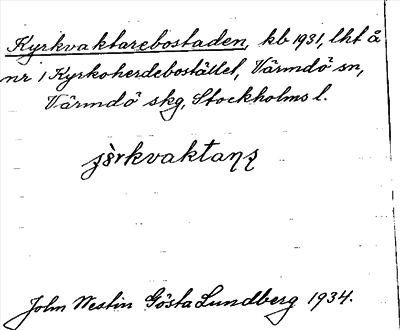 Kyrkvaktarebostaden, kb 1931, lht å
nr 1 Kyrkoherdebostället, Värmdö sn,
Värmdö skg, Stockholms l.
John Westin Gösta Lundberg 1934.